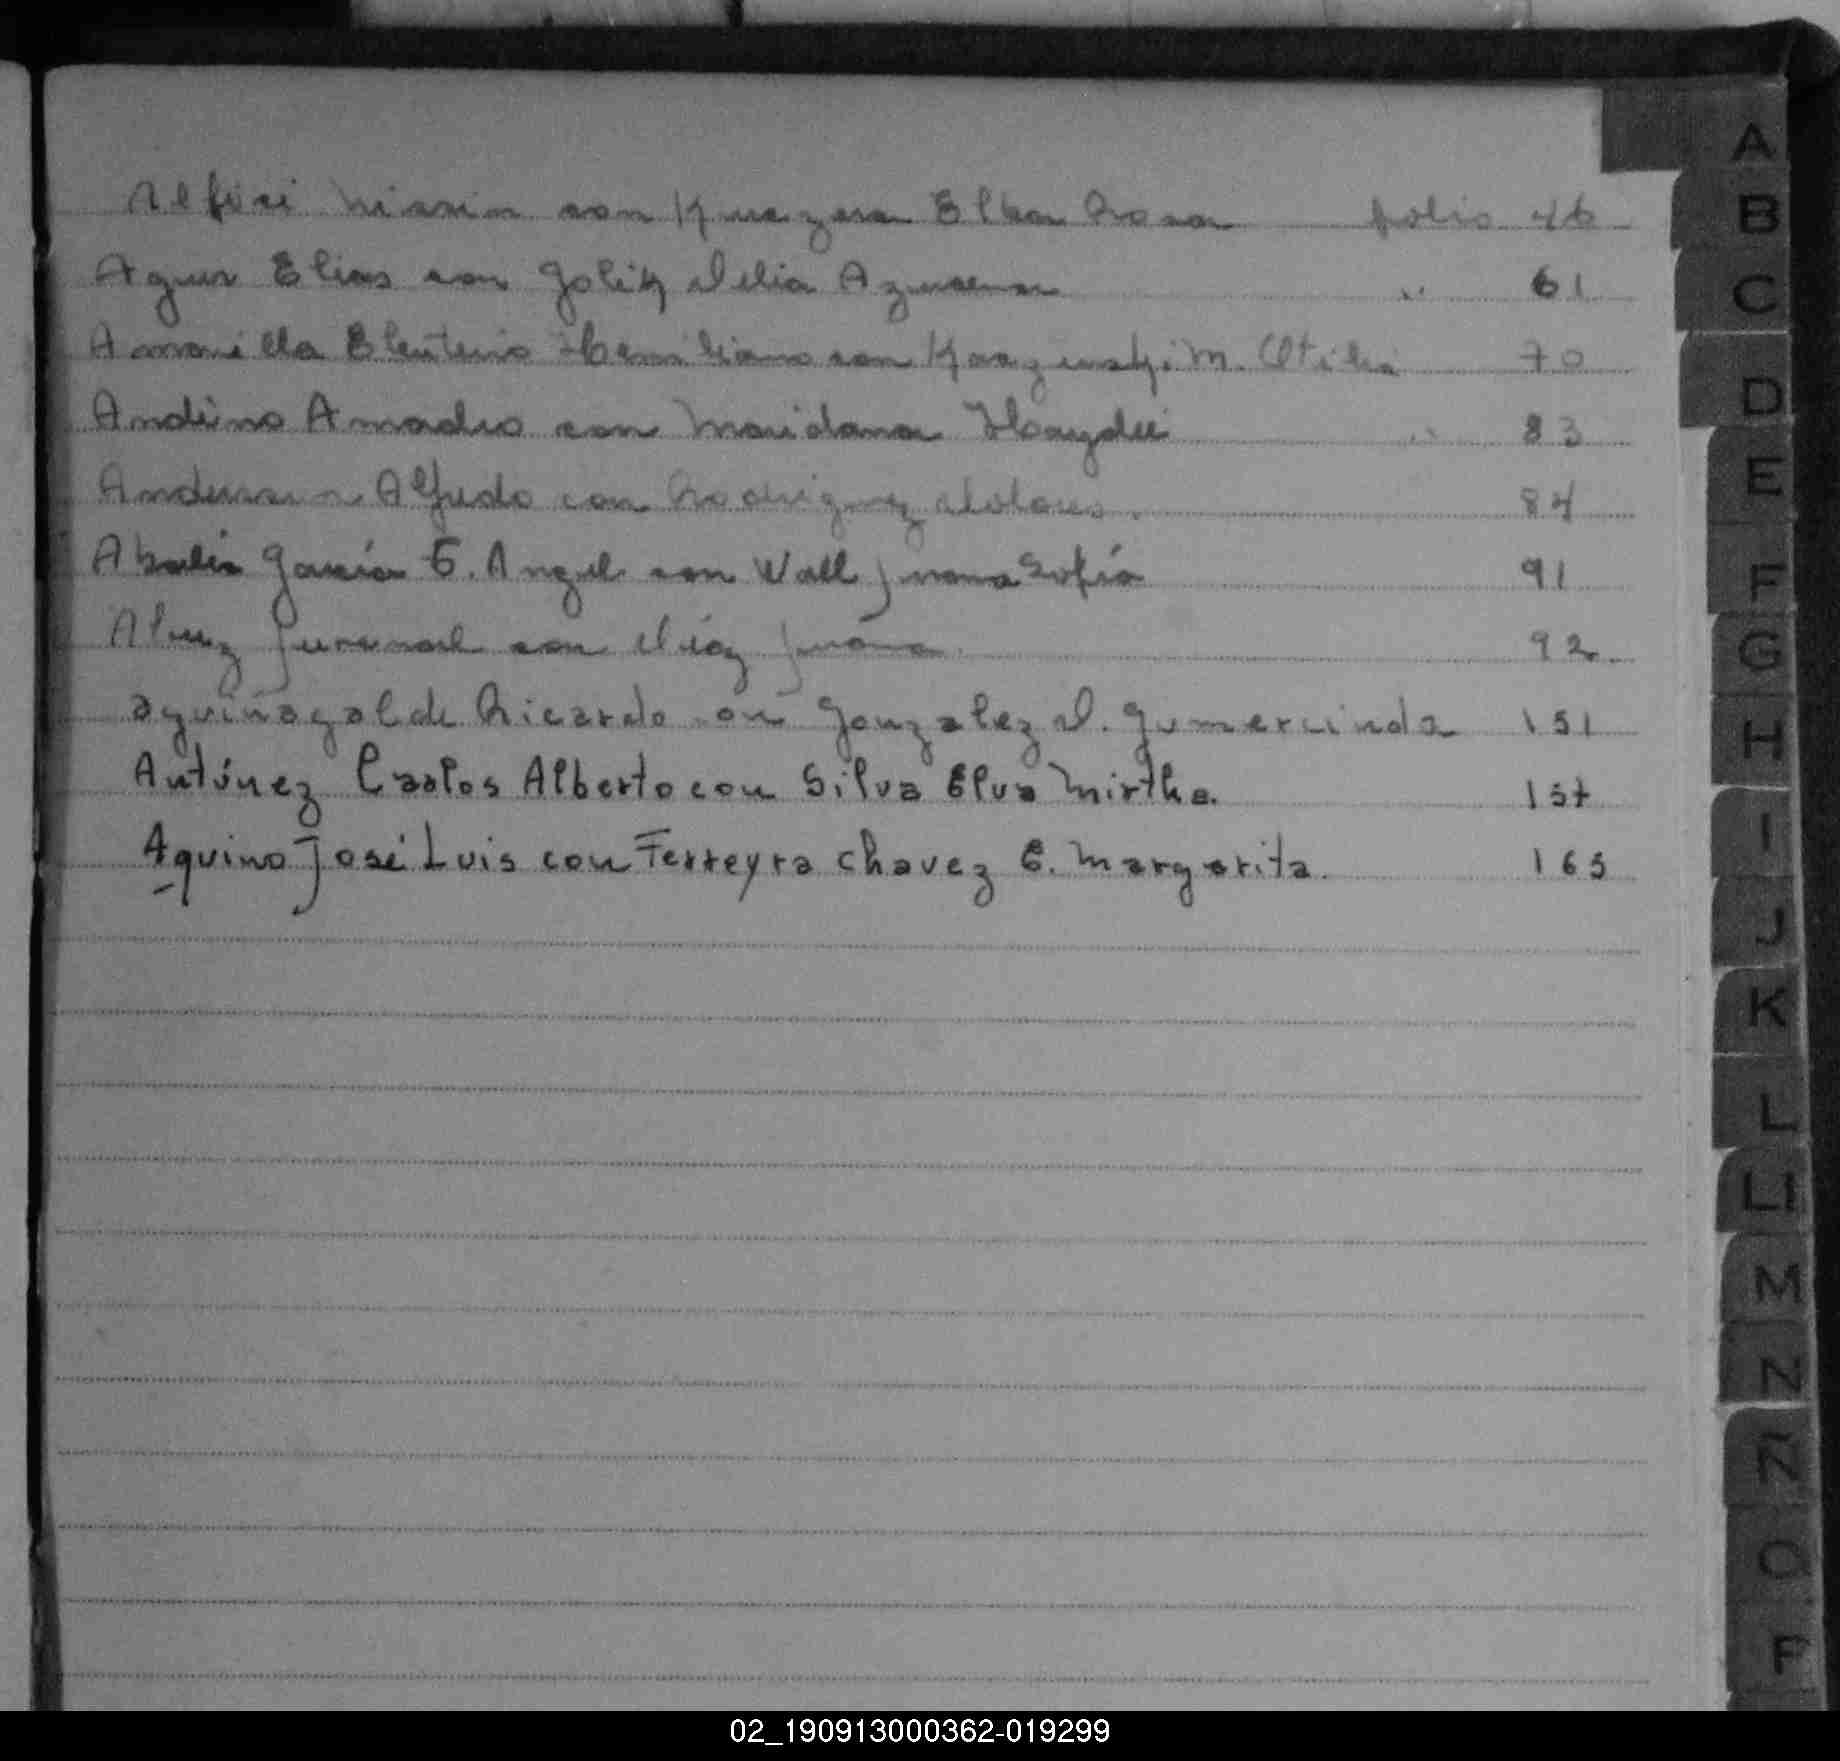 Alfici Nissin con Kuczera Elba Rosa folio 46
A
Agur Elias con Golik Delia Azucena " 61
B
C
Amarilla Eleuterio Hemiliano con Kaczuski M. Otilia 70
D
Andino Amadeo con Maidana Haydeé " 83
E
Anderson Alfredo con Rodriguez Dolores. 84
Abalia García E. Angel con Wall Juana Sofía 91
F
Juvenal con Díaz Juana 92
G
Aguinagalde Ricardo con Gonzalez D. Gumercinda 151
H
Antúnez Carlos Alberto con Silva Elva Mirtha. 157
I
Aquino José Luis con Ferreyra Chavez E. Margarita. 165
J
K
L
Ll
M
N
Ñ
O
P
02_190913000362-019299